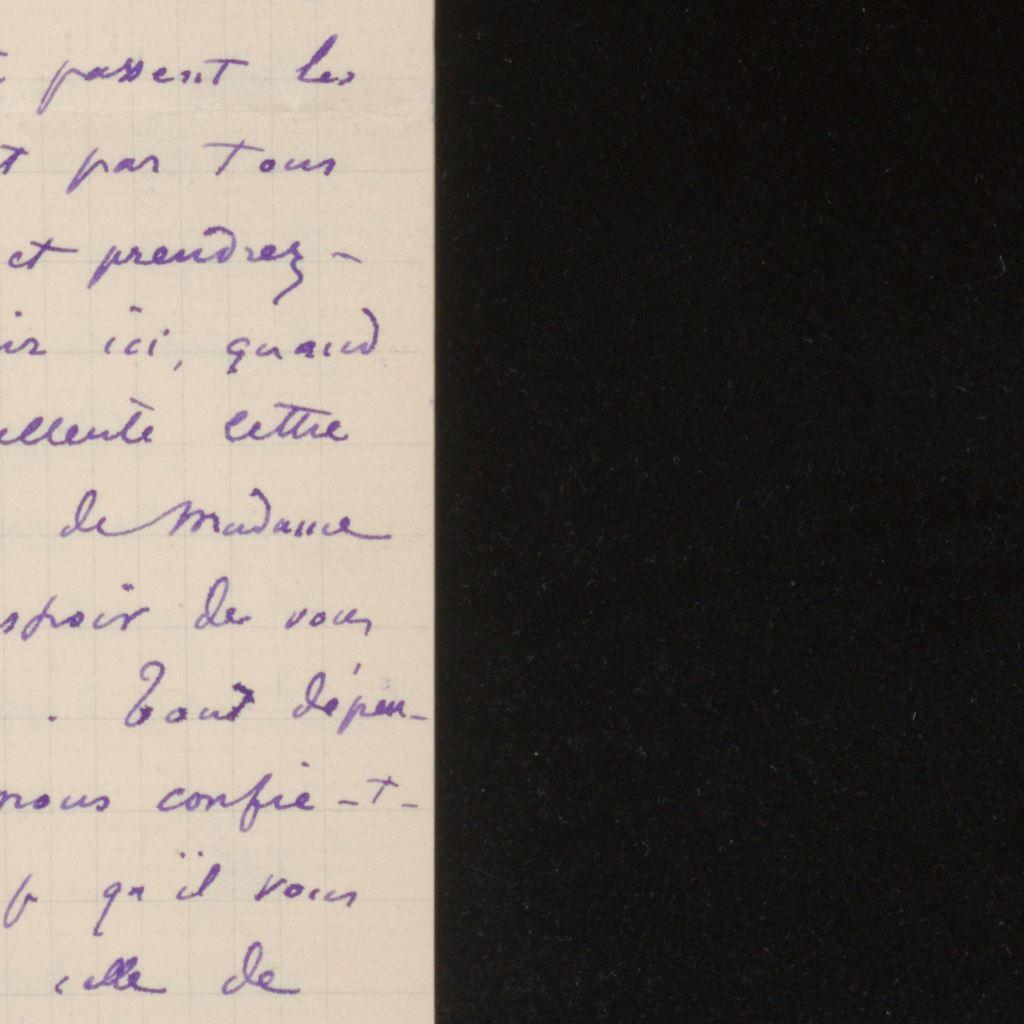 passent les
t par tous
et prendrez-
ir ici, quand
ellente lettre
de Madame
spoir de vous
. Tout dépen-
nous confie-t-
qu'il vous
celle de